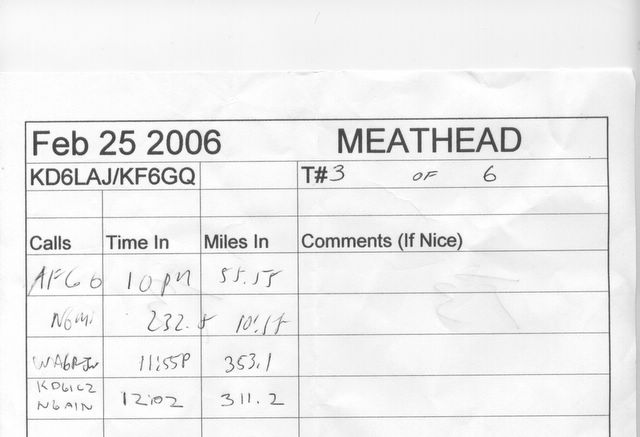 Feb 25 2006 MEATHEAD
KD6LAJ/KF6GQ T#3 OF 6
Calls Time In Miles In Comments (If Nice)
10 PM 55.55
232.8
11:55P 353.1
KD6ICZ
N6AIN 12:02 311.2